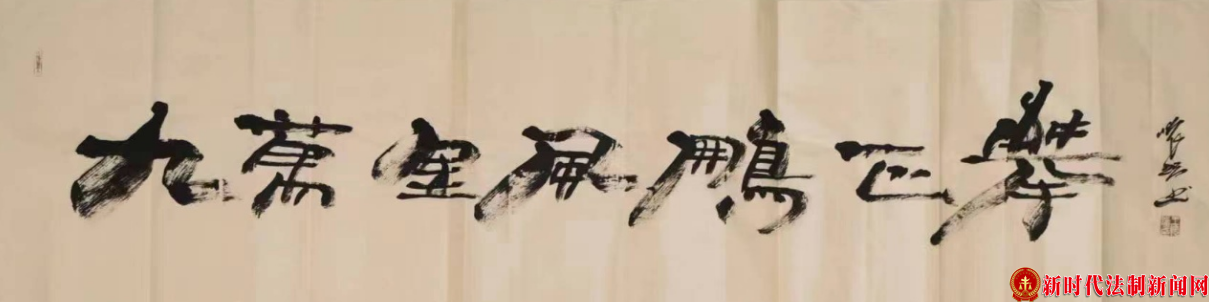 九萬里風鵬正舉
新时代法制新闻网